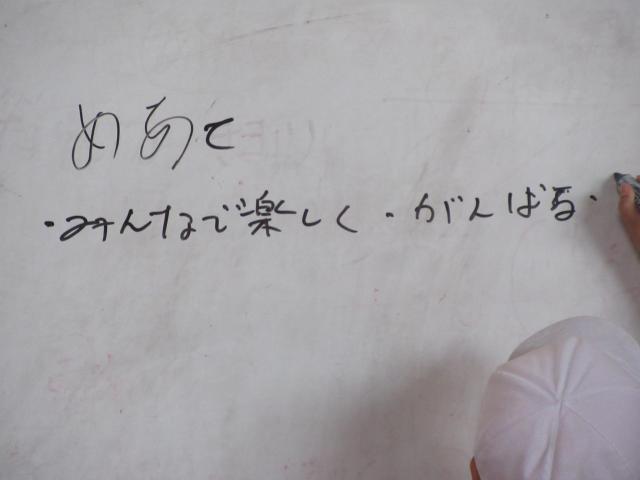 めあて
・みんなで楽しく・がんばる・